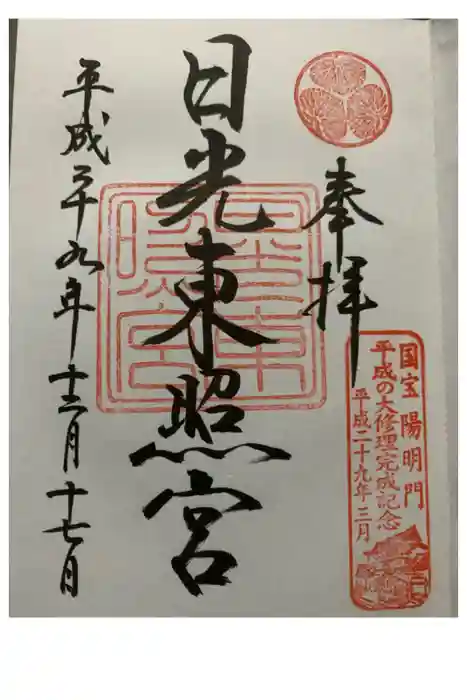 奉拝
国宝 陽明門
平成の大修理完成記念
平成二十九年三月
日光東照宮
平成二十九年十二月十七日